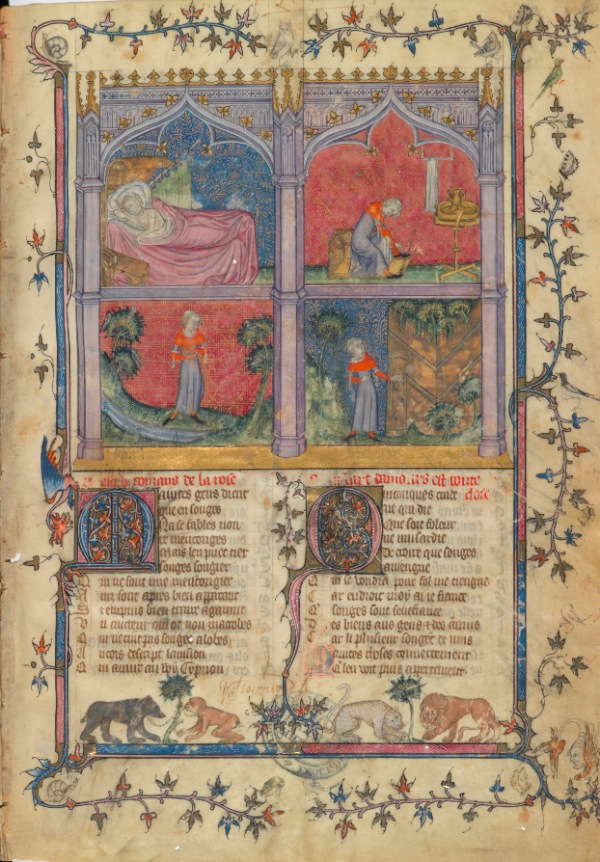 rommans de la rose
Maintes gens dient
que en songes
Na se fables non
et menconges
Mais len puet tiex
songes songier
Qui ne sont mie mencongier
Ainz sont apres bien apparant
Si en puis bien traire a garant
Un aucteur qui ot non macrobes
Qui ne tient pas songes a lobes
Aincois descript lavision
Qui avint au roy Cyprion
Ou lart damours est toute close
Quiconques cuide
ne qui die
Que soit foleur
ne musardie
De croire que songes
aviengne
Qui ce voudra pour fol me tiengne
Car endroit moy ai je fiance
Que songes sont senefiance
Des biens aus gens et des anuis
Car li plusieur songent de nuis
Maintes choses couvertement
Que len voit puis apertement